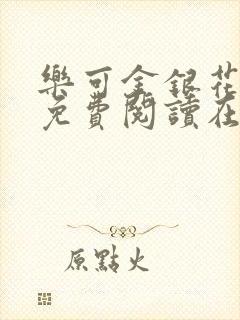 樂可金銀花
免費閱讀在
原點火